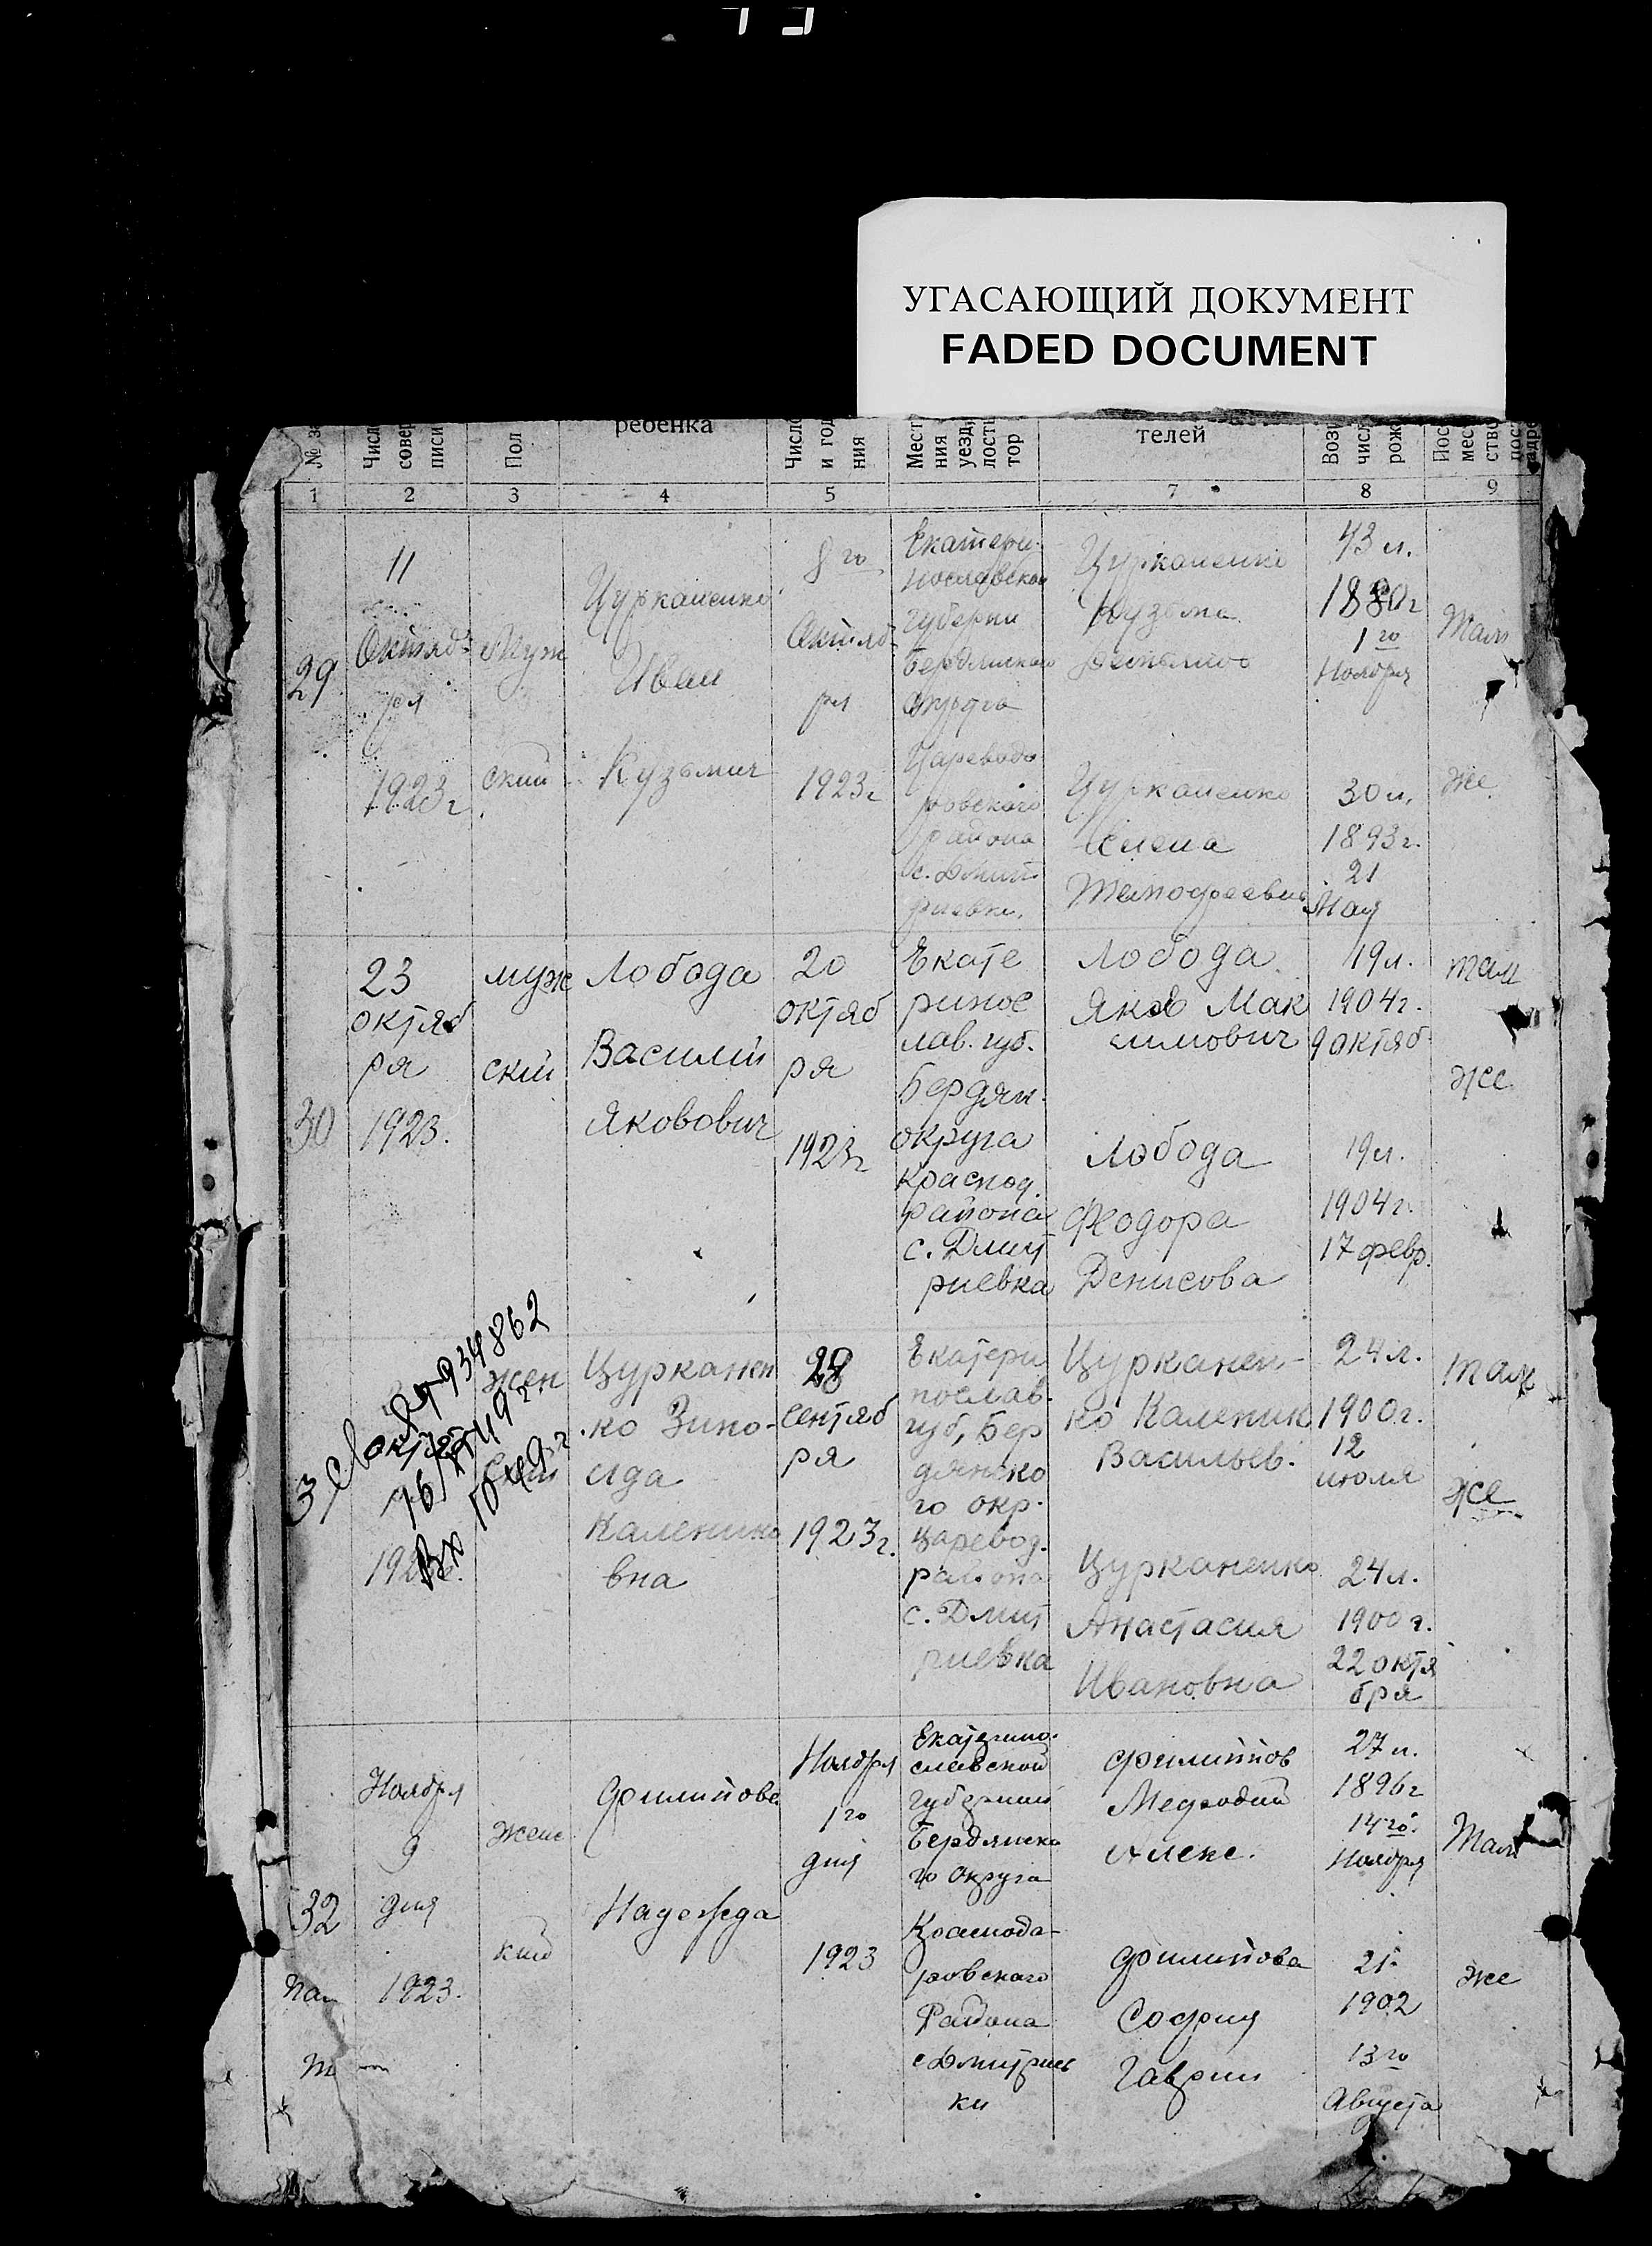 УГАСАЮЩИЙ ДОКУМЕНТ
FADED DOCUMENT
ребенка
телей
Пол
1
2
3
4
5
7
8
9
29
11
Октяб
ря
1923 г
Муж
ский
Цурканенко
Иван
Кузьмич
8 го
Октяб
ря
1923 г
Екатери-
нославской
губерни
Бердянского
округа
Цареводо
ровского
района
с. Дмит
риевки.
Цурканенко
Кузьма
Цурканенко
Елена
43 л.
1880 г
1 го
Ноября
30 л.
1893 г.
21
Мая
Там
же
30
23
октяб
ря
1923.
муж
ский
Лобода
Василий
Яковович
20
октяб
ря
1923 г
Екате
ринос
лав. губ.
Бердян.
округа
Краснод.
района
с. Дмит
риевка
Лобода
Яков Мак
симович
Лобода
Феодора
Денисова
19 л.
1904 г.
9 октяб
19 л.
1904 г.
17 февр.
там
же
934862
жен
Цурканен
ко Зино-
ида
Каленико
вна
28
сентяб
ря
1923 г.
Екатери
нослав.
губ, Бер
дянско
го окр.
Царевод.
района
с. Дмит
риевка
Цурканен-
ко Каленик
Васильев.
Цурканенко
Анастасия
Ивановна
24 л.
1900 г.
12
июля
24 л.
1900 г.
22 октя
бря
там
же
32
Ноября
9
дня
1923.
Женс
кий
Филипова
Надежда
Ноября
1 го
дня
1923
Екатерино-
славской
губернии
Бердянско
го Округа
Краснода-
ровского
Района
с Дмитриев
ки
Филиппов
Мефодий
Алекс.
Филипова
София
Гаврил
27 л.
1896 г
14 го.
Ноября
21
1902
13 го
Августа
Там
же